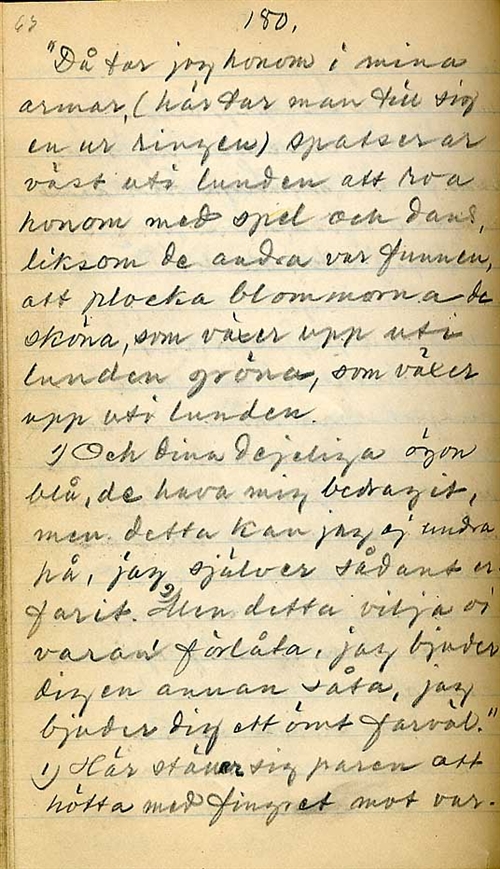 63 180.
"Då tar jag honom i mina
armar, (här tar man till sig
en ur ringen) spatserar
väst uti lunden att roa
honom med spel och dans,
liksom de andra var funnen,
att plocka blommorna de
sköna, som växer upp uti
lunden gröna, som växer
upp uti lunden.
1) Och dina dejeliga ögon
blå, de hava mig bedragit,
men detta kan jag ej undra
på, jag själver sådant er-
farit. 2) Men detta vilja vi
varan' förlåta, jag bjuder
dig en annan såta, jag
bjuder dig ett ömt farväl."
1) Här ställer sig paren att
hötta med fingret mot var-